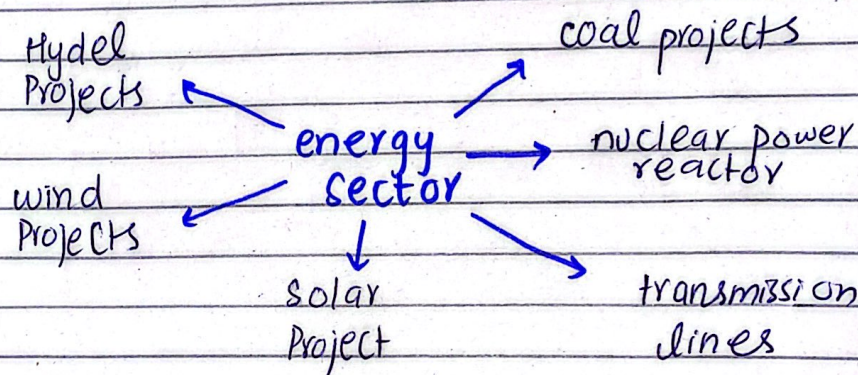 Hydel
Projects
coal projects
energy
sector
nuclear power
reactor
wind
Projects
solar
Project
transmission
lines